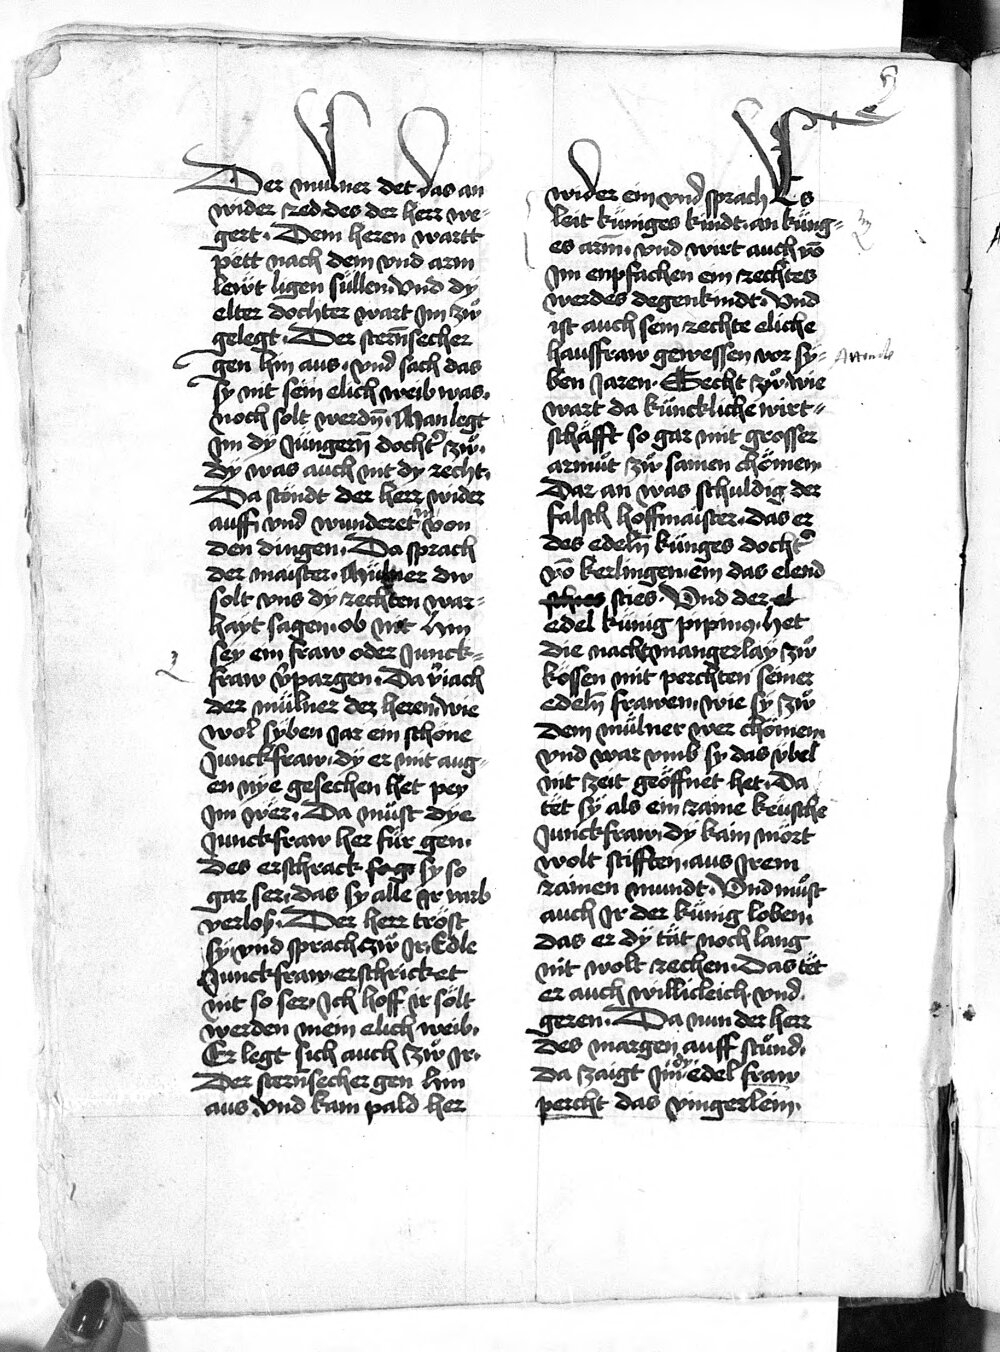 Der mulner det das an
wider red des der herr we-
gert. Dem heren wartt
pett nach dem vnd arm
lewt ligen süllen. Vnd dy
elter dochter wart Jm zů
gelegt. Der stern̄secher
gen hin aus. vnd sach das
sy nit sein elich weib was.
noch solt werdn̄. Man legt
Jm dy Jüngern̄ docht᾽ zů.
dy was auch nit dy recht.
Da stöndt der herr wider
auff. vnd wunderet von
den dingen. Da sprach
der maister. Mülner dw
solt vns dy rechten war-
hayt sagen. ob nit hin
sey ein fraw oder Junck-
fraw v᾽pargen. Da v᾽iach
der mülner dez heren. wie
wol syben Jar ein schöne
Junckfraw. dy er mit aug-
en nye gesechen het pey
Jm wer. Da müst dye
Junckfraw her für gen.
des erschrack sy so
gar ser. das sy alle Jr varb
verlos. Der herr tröst
sy vnd sprach zů Jr. Edle
Junckfraw erschricket
nit so ser. Ich hoff ir sölt
werden mein elich weib.
Er legt sich auch zů Jr.
Der sternsecher gen hin
aus. vnd kam pald her
wider ein vnd sprach Es
leit küniges kindt. an küng-
es arm̄. vnd wirt auch vō
Jm enpfachen ein rechtes
werdes degenkindt. Vnd
ist auch sein rechte eliche
hauffraw gewessen vor sy-
ben Jaren. Secht zů. wie
wart da künckliche wirt-
schäfft so gar mit grosser
armůt zů samen chömen.
Dar an was schuldig der
falsch hoffmaister. das er
des edeln̄ künges docht᾽
vō kerlingen. ein das elend
sties. Vnd der el
edel künig pipinus. het
die nacht mangerlay zů
kössen mit perchten seiner
edeln̄ frawen. wie sy zů
dem mülner wer chömen.
vnd war vmb sy das vbel
nit zeit geöffnet het. Da
tet sy als ein raine keusche
Junckfraw. dy kam mort
wolt stifften. aus Jrem
rainen mundt. Vnd můst
auch Jr der künig loben.
das er dy tät noch lang
nit wolt rechen. Das tet
er auch willicleich. vnd.
geren. Da nun der herr
des margen auff stůnd.
da zaigt Jm dy edel fraw
percht das vingerlein.